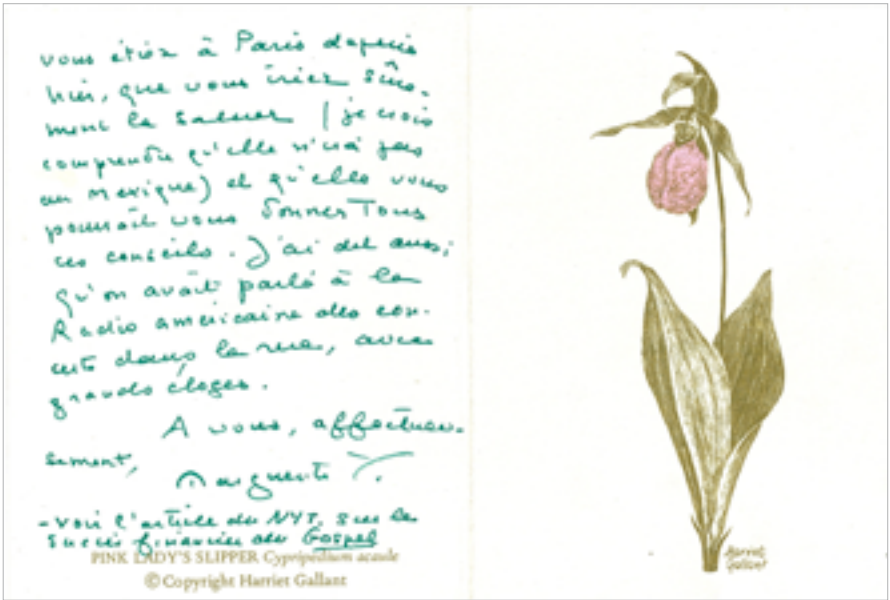 vous étiez à Paris depuis
hier, que vous iriez sûre-
ment la saluer (je crois
comprendre qu'elle n'ira pas
au Mexique) et qu'elle vous
pourrait vous donner Tous
ces conseils. J'ai dit aussi
qu'on avait parlé à la
Radio américaine des con-
certs dans la rue, avec
grands éloges.
A vous, affectueu-
sement,
Marguerite Y.
- Voir l'article du NYT. sur le
succès financier du Gospel
PINK LADY'S SLIPPER Cypripedium acaule
© Copyright Harriet Gallant
Harriet
Gallant